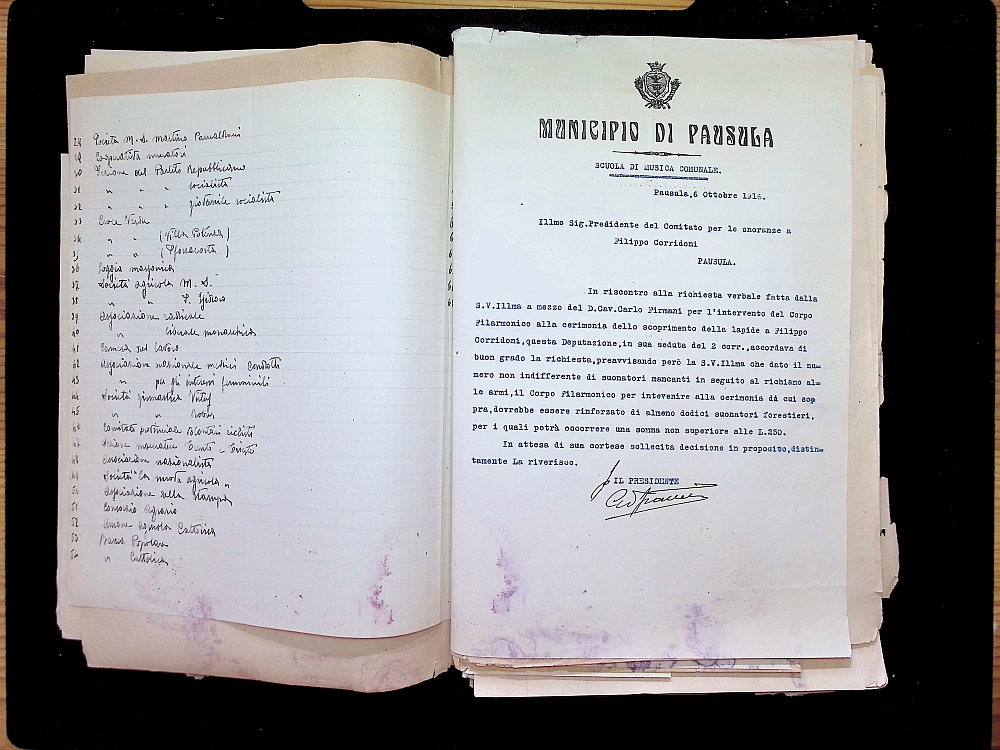 28 Società M. S. Martino
29 Cooperativa muratori
30 Sezione del Partito Repubblicano
31 " " " socialista
32 " " " giovanile socialista
33 Croce Verde
34 " " (Villa Potenza)
35 " " (Sforzacosta)
36 Loggia massonica
37 Società agricola M. S.
38 " " S. Isidoro
39 Associazione radicale
40 " liberale monarchica
41 Camera del lavoro
42 Associazione nazionale medici condotti
43 " per gli interessi femminili
44 Società ginnastica Virtus
45 " " Robur
46 Comitato provinciale volontari ciclisti
47 Sezione Trento e Trieste
48 Associazione nazionalista
49 Società "la nuova agricola"
50 Associazione della Stampa
51 Consorzio Agrario
52 Unione Agricola Cattolica
53 Banca Popolare
54 " Cattolica
MUNICIPIO DI PAUSULA
SCUOLA DI MUSICA COMUNALE.
Pausula,6 Ottobre 1916.
Illmo Sig.Presidente del Comitato per le onoranze a
Filippo Corridoni
PAUSULA.
In riscontro alla richiesta verbale fatta dalla
S.V.Illma a mezzo del D.Cav.Carlo Firmani per l'intervento del Corpo
Filarmonico alla cerimonia dello scoprimento della lapide a Filippo
Corridoni,questa Deputazione,in sua seduta del 2 corr.,accordava di
buon grado la richiesta,preavvisando però la S.V.Illma che dato il nu=
mero non indifferente di suonatori mancanti in seguito al richiamo al=
le armi,il Corpo Filarmonico per intevenire alla cerimonia di cui sop
pra,dovrebbe essere rinforzato di almeno dodici suonatori forestieri,
per i quali potrà occorrere una somma non superiore alle L.250.
In attesa di sua cortese sollecita decisione in proposito,distin=
tamente La riverisco.
IL PRESIDENTE